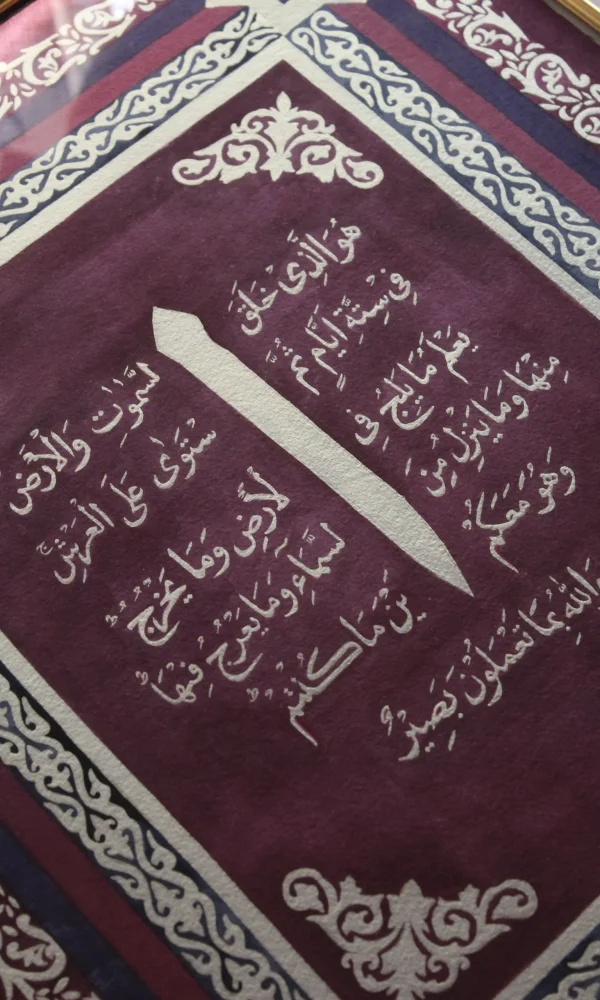 هُوَ الَّذِى خَلَقَ السَّمٰوٰتِ وَالْأَرْضَ
فِى سِتَّةِ اَيَّامٍ ثُمَّ اسْتَوٰى عَلَى الْعَرْشِ
يَعْلَمُ مَا يَلِجُ فِى الْاَرْضِ وَمَا يَخْرُجُ
مِنْهَا وَمَا يَنْزِلُ مِنَ السَّمَاءِ وَمَا يَعْرُجُ فِيْهَا
وَهُوَ مَعَكُمْ اَيْنَ مَا كُنْتُمْ
وَاللّٰهُ بِمَا تَعْمَلُوْنَ بَصِيْرٌ